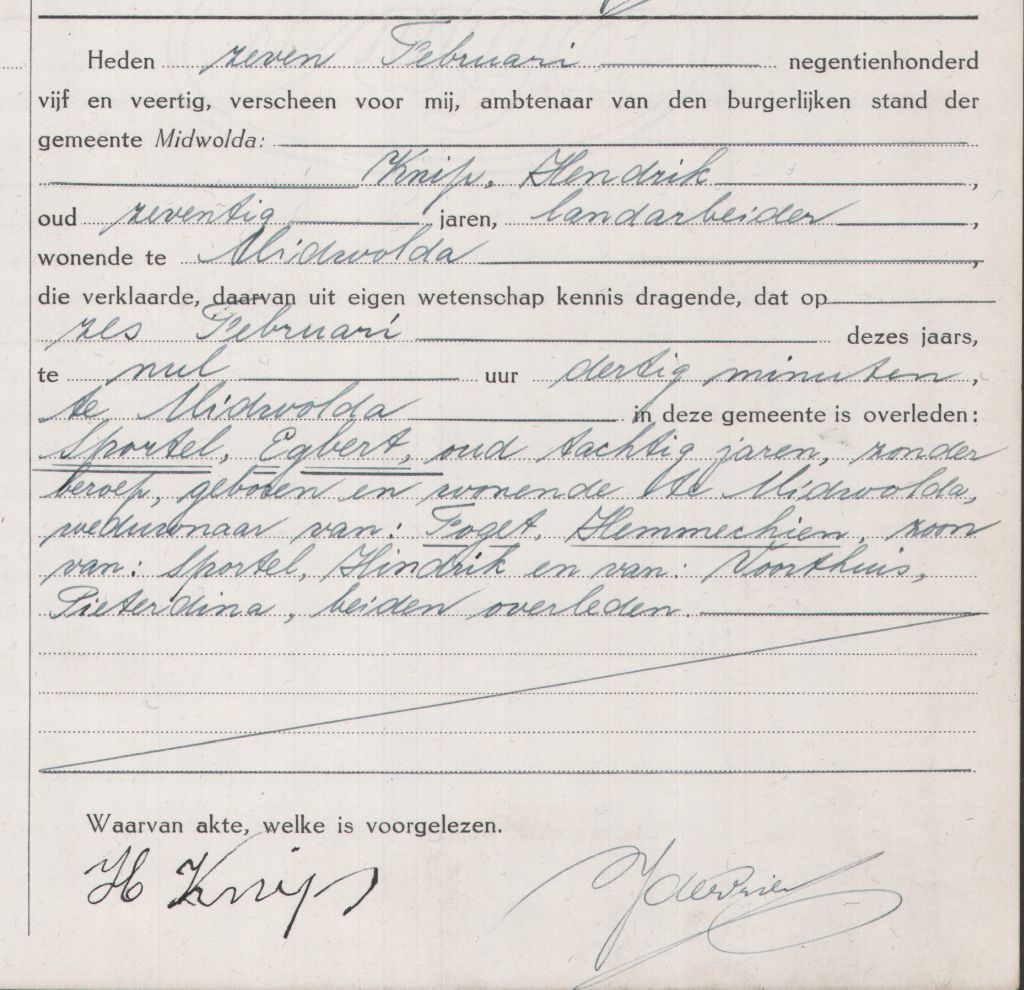 Heden zeven Februari negentienhonderd
vijf en veertig, verscheen voor mij, ambtenaar van den burgerlijken stand der
gemeente Midwolda:
Knip, Hendrik,
oud zeventig jaren, landarbeider,
wonende te Midwolda,
die verklaarde, daarvan uit eigen wetenschap kennis dragende, dat op
zes Februari dezes jaars,
te nul uur dertig minuten,
te Midwolda in deze gemeente is overleden:
Sportel, Egbert, oud tachtig jaren, zonder
beroep, geboren en wonende te Midwolda,
weduwnaar van: Foget, Hemmechien, zoon
van: Sportel, Hindrik en van: Voorthuis,
Pieterdina, beiden overleden.
Waarvan akte, welke is voorgelezen.
H Knip